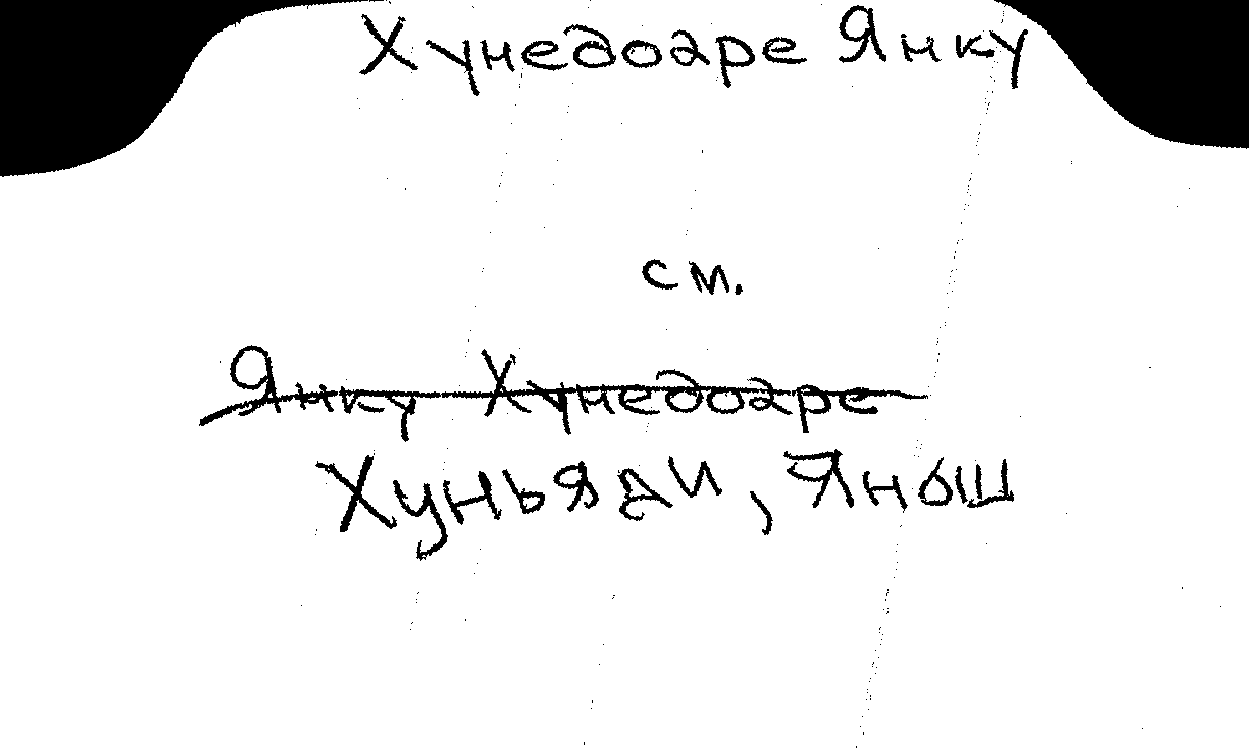 Хунедоаре Янку
см.
Янку Хунедоаре
Хуньяди, Яныш